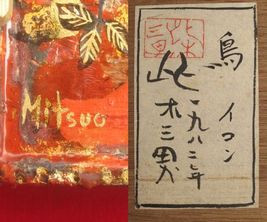 Mitsuo
鳥 イコン
一九八二年
此木三男